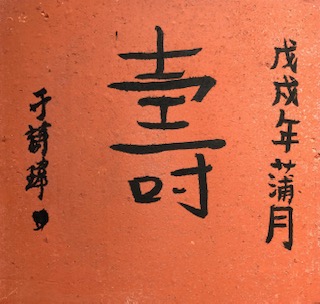 戊戌年蒲月
壽
于諱瑋